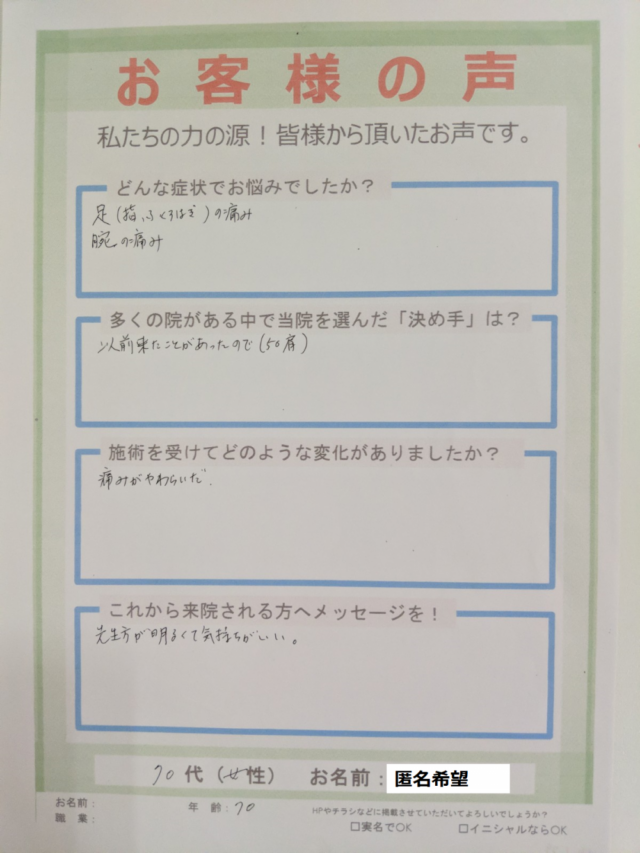 お客様の声
私たちの力の源！皆様から頂いたお声です。
どんな症状でお悩みでしたか？
足(指、ふくらはぎ)の痛み
腕の痛み
多くの院がある中で当院を選んだ「決め手」は？
以前来たことがあったので(50肩)
施術を受けてどのような変化がありましたか？
痛みがやわらいだ.
これから来院される方へメッセージを！
先生方が明るくて気持ちがいい。
70代（女性） お名前：匿名希望
お名前：
職業：
年齢：70
HPやチラシなどに掲載させていただいてよろしいでしょうか？
□実名でOK □イニシャルならOK